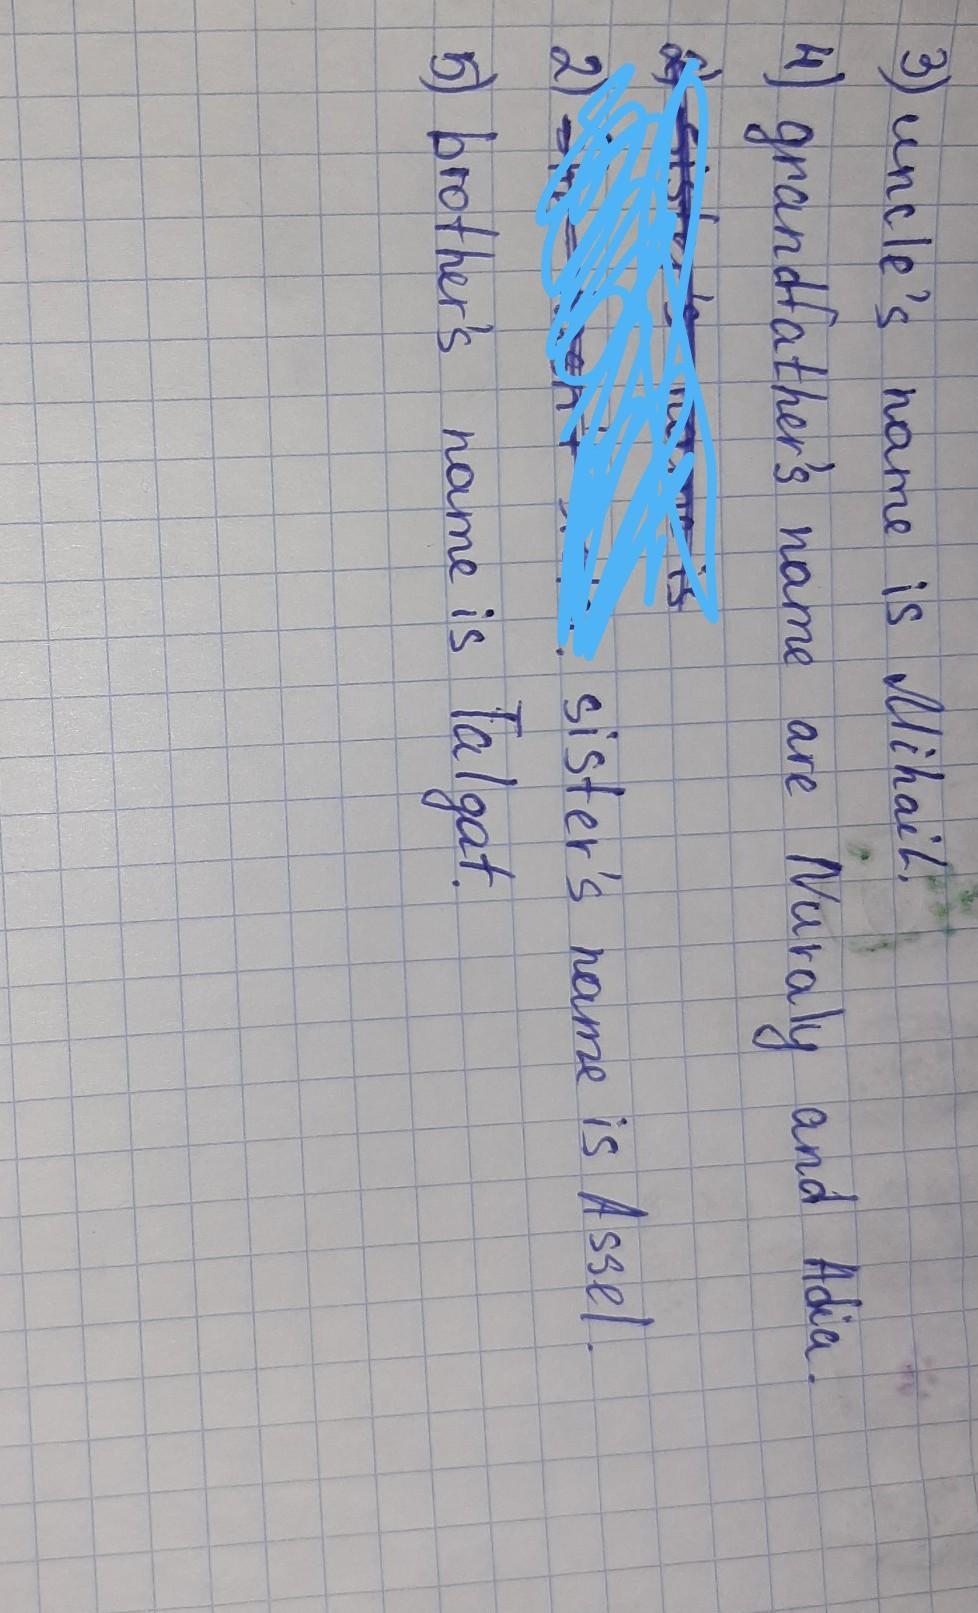 3) uncle's name is Mihail.
4) grandfather's name are Nuraly and Adia.
2) sister's name is Assel.
5) brother's name is Talgat.